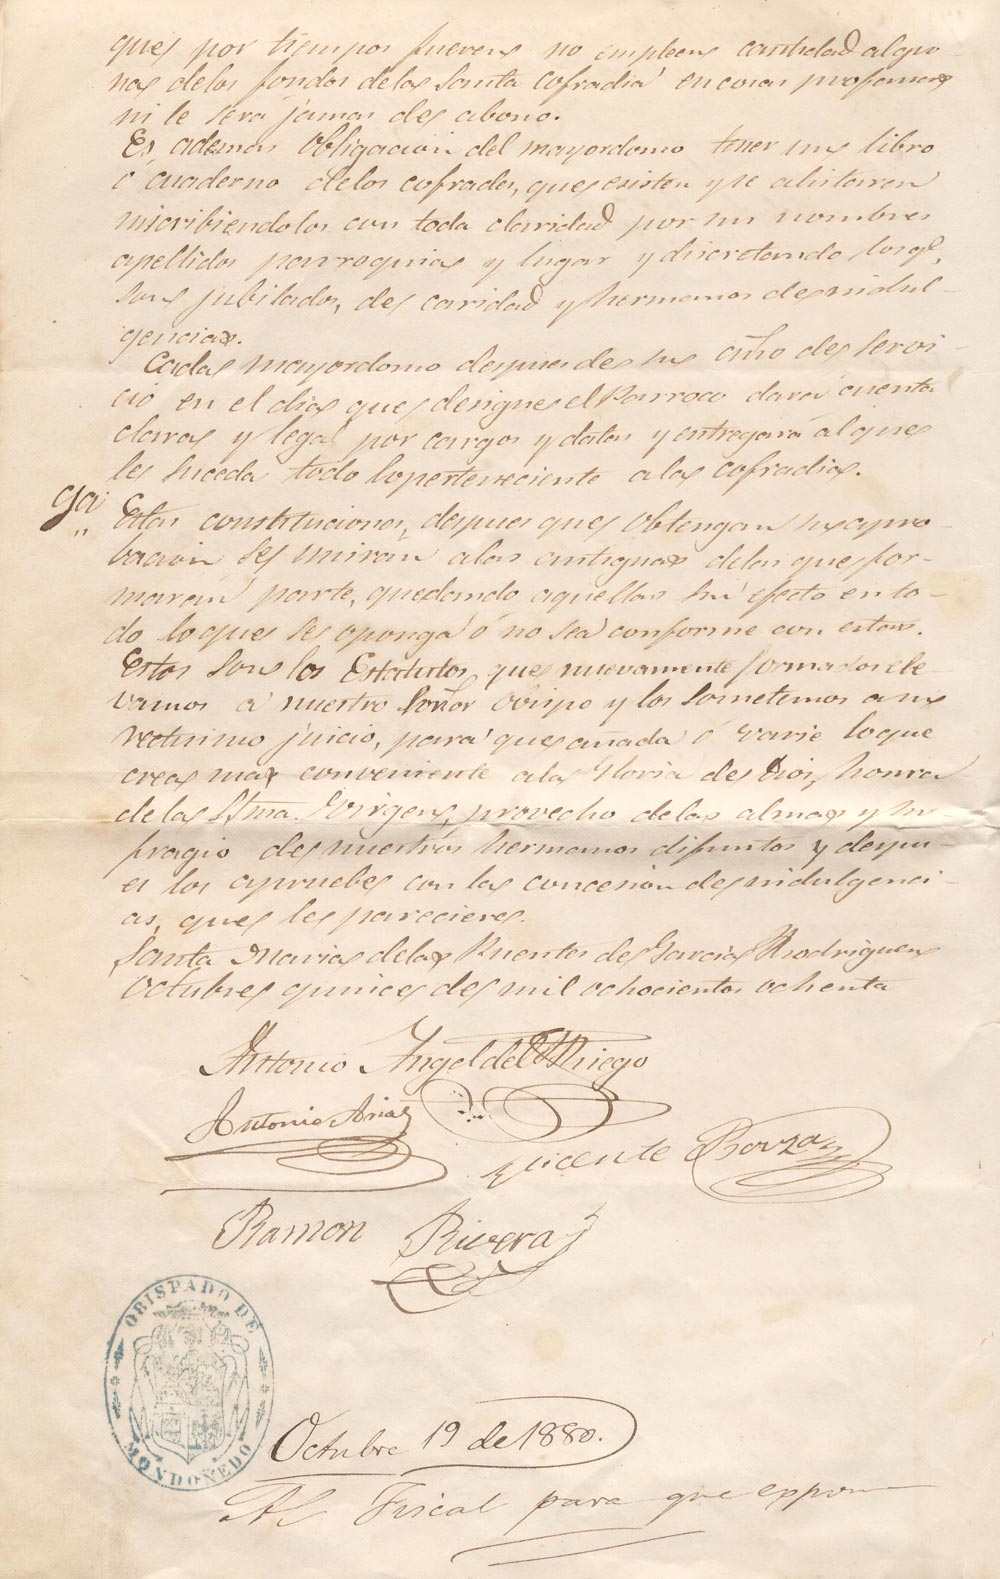 que por tiempos fueren no empleen cantidad algu-
nas de los fondos de la Santa Cofradia en cosas profanas
ni le será jamas de abono.
Es ademas obligacion del mayordomo tener un libro
ó cuaderno de los cofrades, que existen y se alistaren
inscribiendolos con toda claridad por su nombre
apellidos parroquia y lugar y discretando los q.e
son jubilados, de caridad y hermanos de indul-
gencias.
Cada mayordomo despues de su año de servi-
cio en el dia que designe el Parroco dará cuenta
clara y legal por cargos y datas y entregará al que
le suceda todo lo perteneciente a la cofradia.
9a Estas constituciones, despues que obtengan su apro-
bacion se unirán a las antiguas de las que for-
marán parte, quedando aquellas sin efecto en to-
do lo que se oponga ó no sea conforme con estas.
Estos son los Estatutos, que nuevamente formados ele-
vamos á nuestro Señor Obispo y los sometemos a su
rectisimo juicio, para que añada ó varie lo que
crea mas conveniente a la Gloria de Dios, honra
de la Stma. Virgen, provecho de las almas y su
fragio de nuestros hermanos difuntos y despu-
es los apruebe con la concesion de indulgenci-
as, que le pareciere.
Santa Maria de las Puentes de Garcia Rodriguez
Octubre quince de mil ochocientos ochenta
Antonio Angel del Riego
Antonio Arias
Vicente Bouza
Ramon Rivera
OBISPADO DE
MONDOÑEDO
Octubre 19 de 1880.
Al Fiscal para que expon